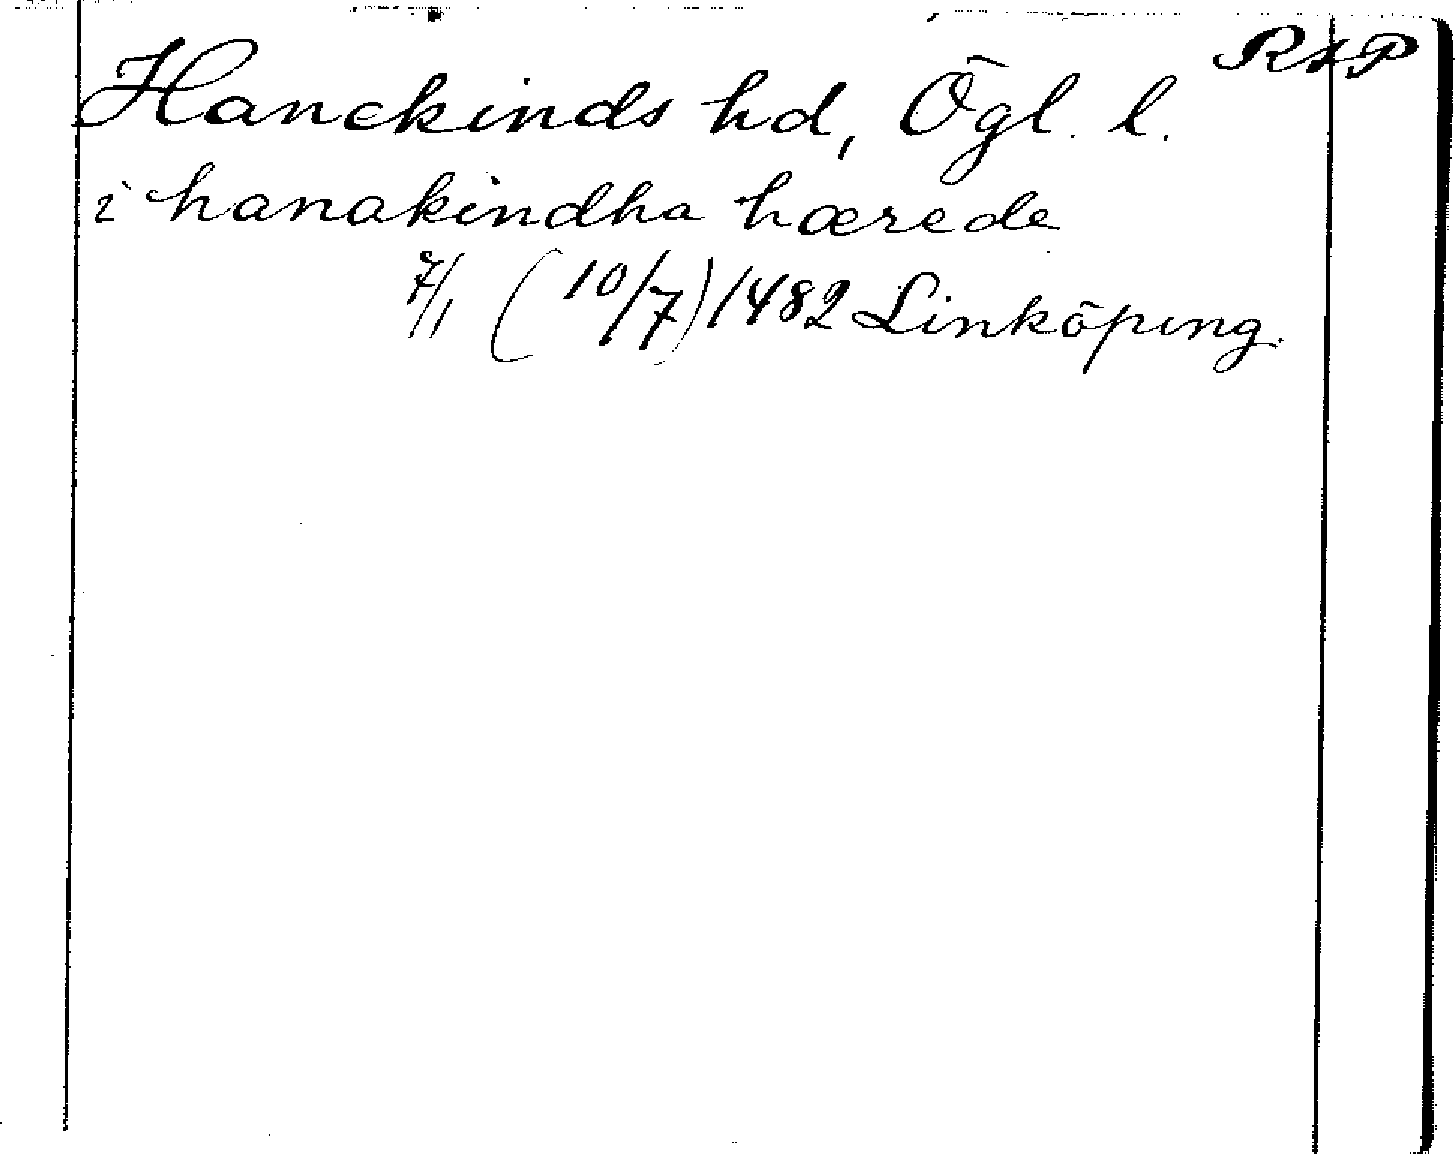 RAP
Hanekinds hd, Ögl. l.
i hanakindha hærede
7/1 (10/7) 1482 Linköping.